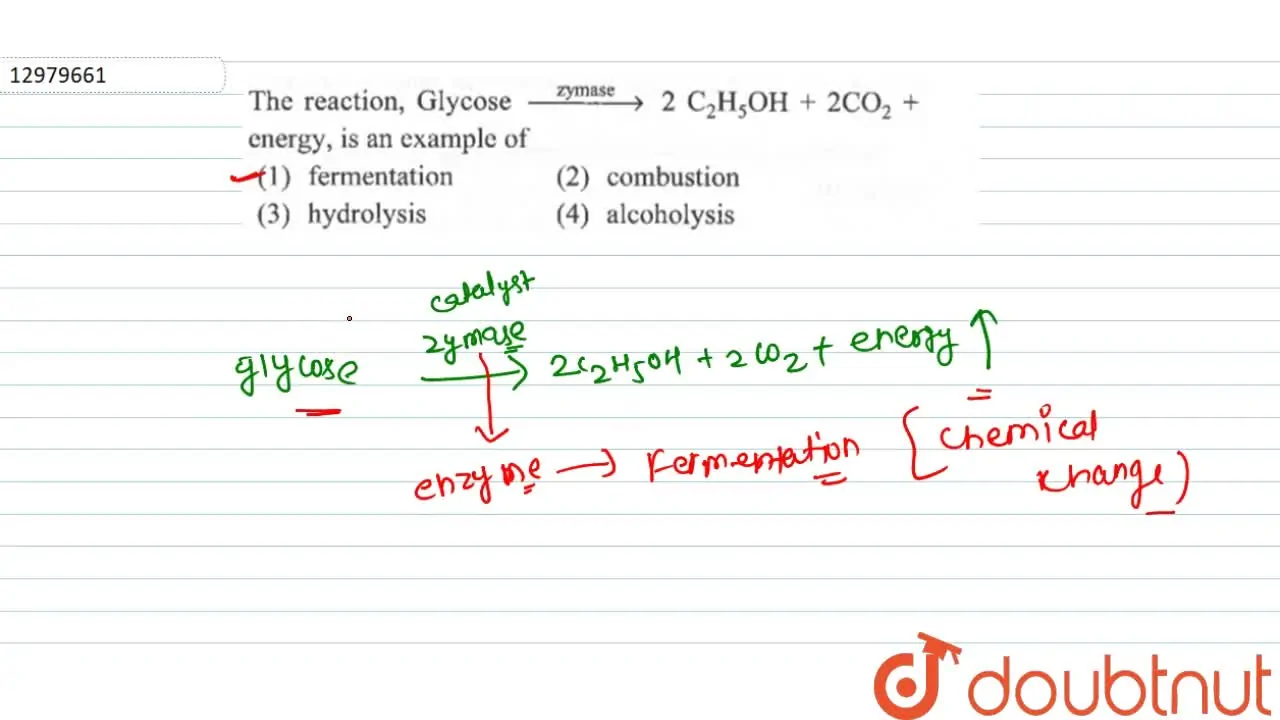 12979661
The reaction, Glycose zymase⟶ 2 C₂H₅OH + 2CO₂ +
energy, is an example of
(1) fermentation (2) combustion
(3) hydrolysis (4) alcoholysis
catalyst
zymase
glycose ⟶ 2C₂H₅OH + 2CO₂ + energy ↑
enzyme ⟶ Fermentation [chemical
change)
doubtnut